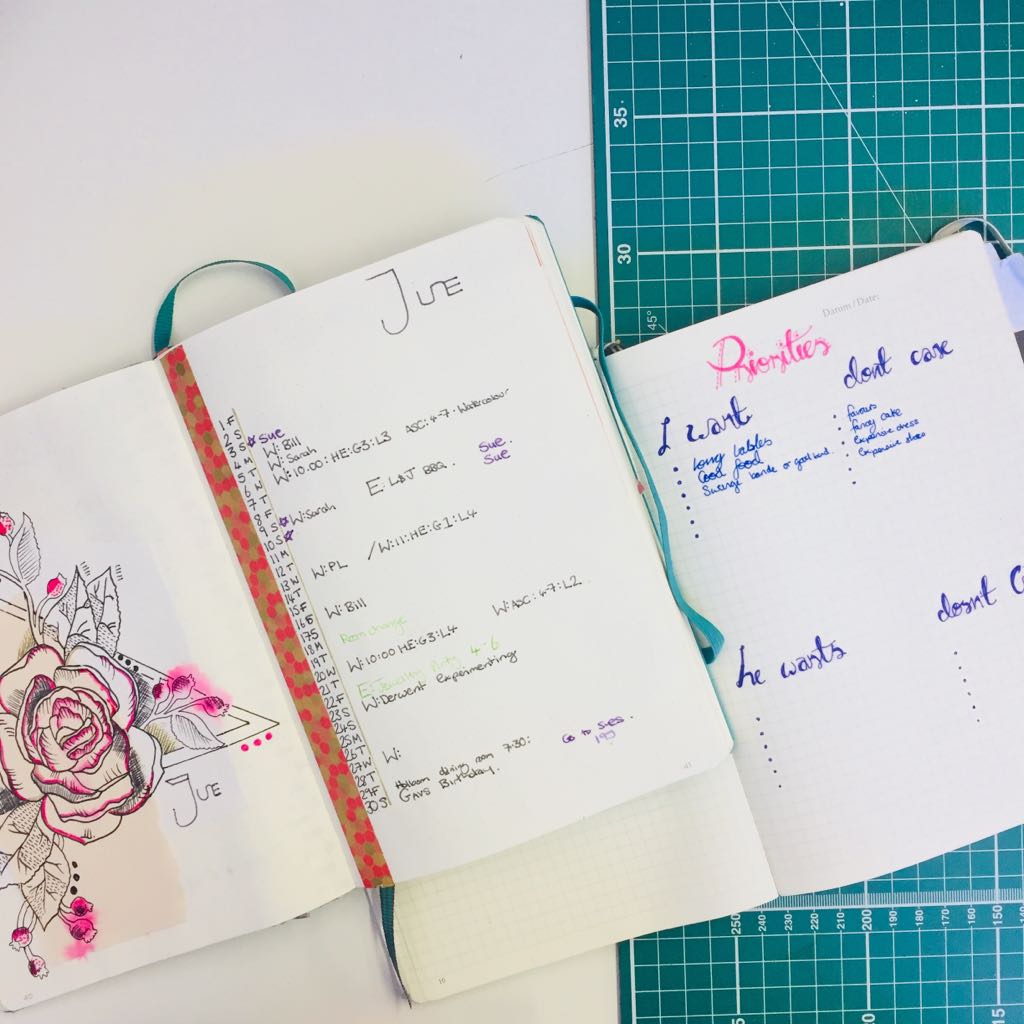 June
1 F
2 S
3 S Sue
4 M W: Bill
5 T W: Sarah
6 W W: 10:00: HE: G3: L3 ASC: 4-7: Watercolour
7 T
8 F E: L&J BBQ. Sue.
9 S Sue
10 S W: Sarah
11 M
12 T
13 W W: PL / W: 11: HE: G1: L4
14 T
15 F
16 S W: Bill
17 S Room change
18 M
19 T W: 10:00 HE: G3: L4 W: ASC: 4-7: L2
20 W
21 T E: Jewellery Party 4-6
22 F W: Derwent Experimenting
23 S
24 S
25 M
26 T W:
27 W
28 T dining room 7:30: Go to Sues
29 F Gavs Birthday.
30 S
41
June
40
16
Datum / Date:
Priorities
I want
Long tables
Good food
Swing band or good band.
dont care
favours
fancy cake
expensive dress
expensive shoes
he wants
dosnt
35
30
45°
250
240
230
220
210
200
190
180
170
160
150
15